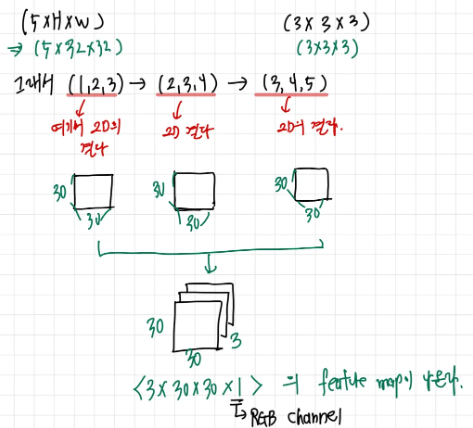 (5×H×W) (3×3×3)
⇒ (5×32×32) (3×3×3)
그래서 (1,2,3) → (2,3,4) → (3,4,5)
여기서 2D의 결과 2D 결과 2D의 결과.
30 30 30
30 30 30
30 3
30
<3×30×30×1> 의 feature map이 나온다.
RGB channel